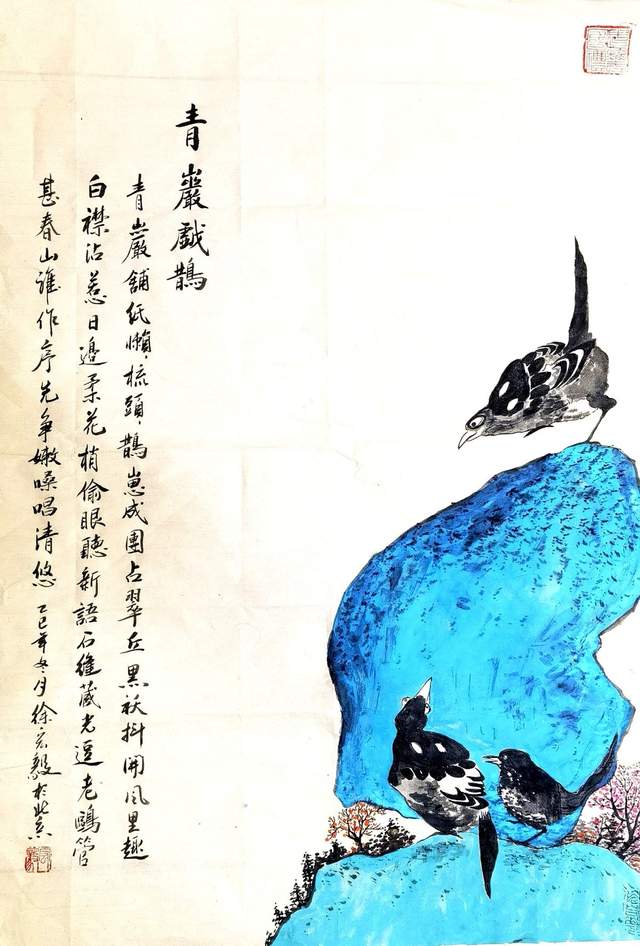 青巖戲鵲
青巖舖紙懶梳頭，鵲崽成團占翠丘黑袄抖開風里趣
白襟沾惹日邊柔花梢偷眼聽新語石縫藏光逗老鷗管
甚春山誰作序先爭嫩嗓唱清悠 乙巳年冬月徐宏毅於北京